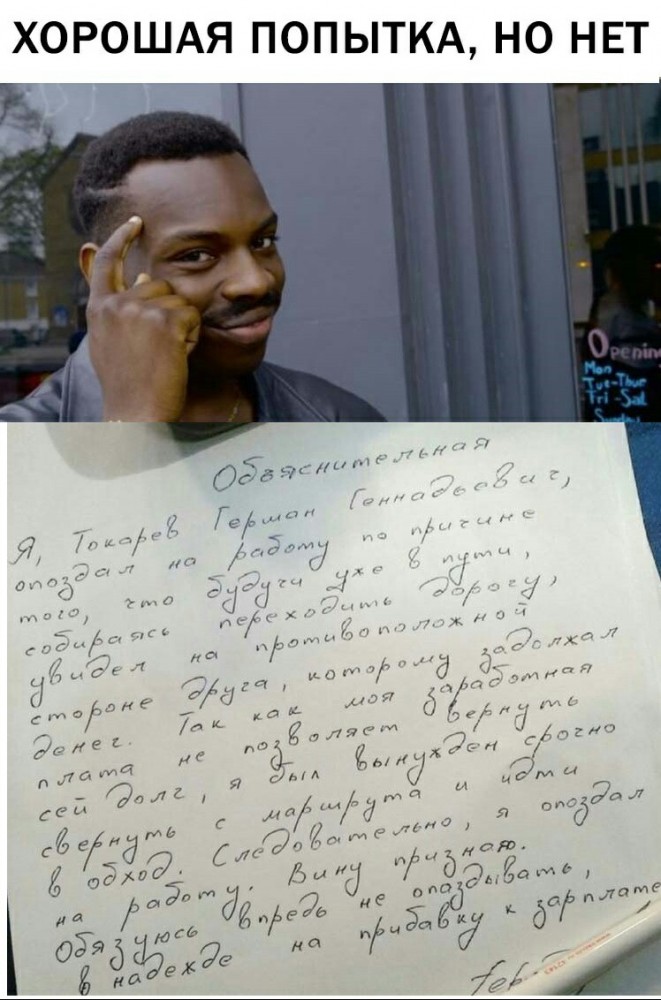 ХОРОШАЯ ПОПЫТКА, НО НЕТ
Opening
Mon
Tue-Thur
Fri-Sat
Объяснительная
Я, Токарев Герман Геннадьевич,
опоздал на работу по причине
того, что будучи уже в пути,
собираясь переходить дорогу,
увидел на противоположной
стороне друга, которому задолжал
денег. Так как моя заработная
плата не позволяет вернуть
сей долг, я был вынужден срочно
свернуть с маршрута и идти
в обход. Следовательно, я опоздал
на работу. Вину признаю.
Обязуюсь впредь не опаздывать,
в надежде на прибавку к зарплате